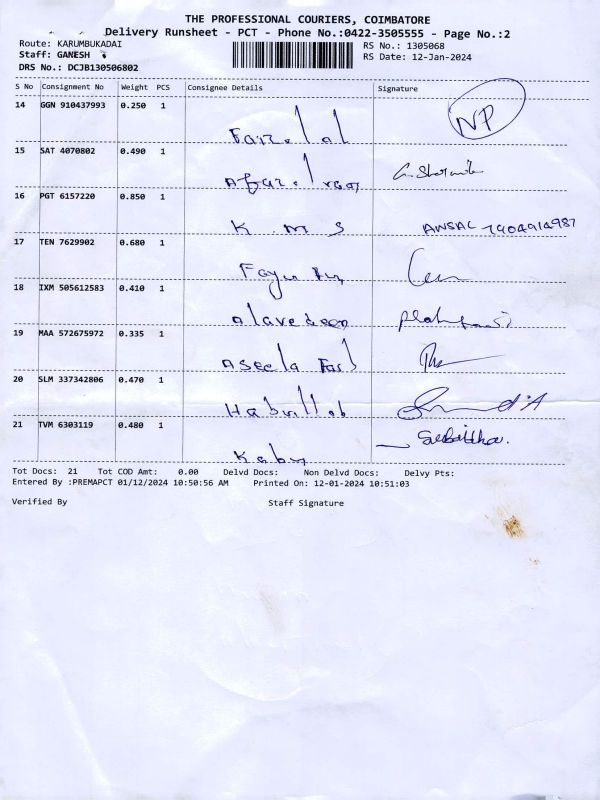 THE PROFESSIONAL COURIERS, COIMBATORE
Delivery Runsheet - PCT - Phone No.:0422-3505555 - Page No.:2
Route: KARUMBUKADAI
RS No.: 1305068
Staff: GANESH
RS Date: 12-Jan-2024
DRS No.: DCJB130506802
S No Consignment No Weight PCS Consignee Details Signature
14 GGN 910437993 0.250 1 NP
15 SAT 4070802 0.490 1
16 PGT 6157220 0.850 1 K M S ANSAL 7904914987
17 TEN 7629902 0.680 1
18 IXM 505612583 0.410 1 Alavedeen
19 MAA 572675972 0.335 1 Aseela
20 SLM 337342806 0.470 1
21 TVM 6303119 0.480 1
Tot Docs: 21 Tot COD Amt: 0.00 Delvd Docs: Non Delvd Docs: Delvy Pts:
Entered By :PREMAPCT 01/12/2024 10:50:56 AM Printed On: 12-01-2024 10:51:03
Verified By Staff Signature